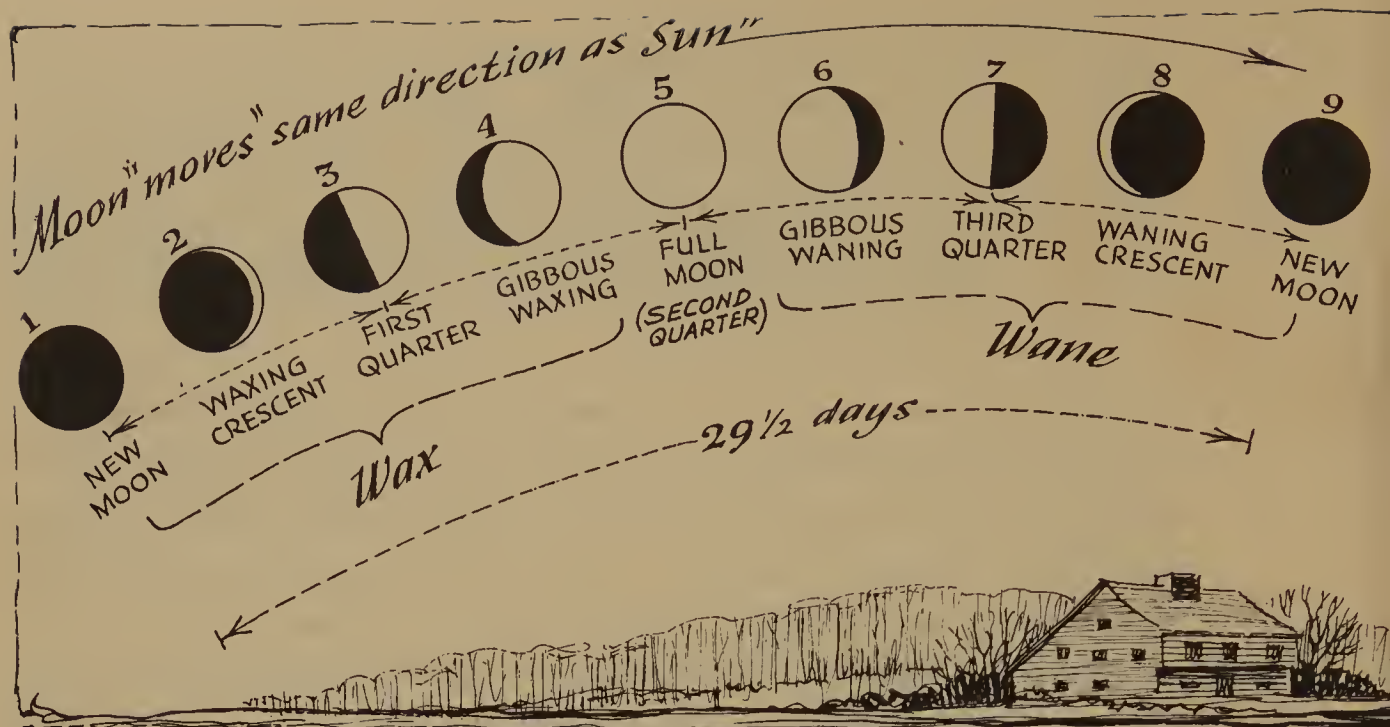 Moon "moves" same direction as Sun"
1
2
3
4
5
6
7
8
9
NEW
MOON
WAXING
CRESCENT
FIRST
QUARTER
GIBBOUS
WAXING
FULL
MOON
(SECOND
QUARTER)
GIBBOUS
WANING
THIRD
QUARTER
WANING
CRESCENT
NEW
MOON
Wax
Wane
29 1/2 days